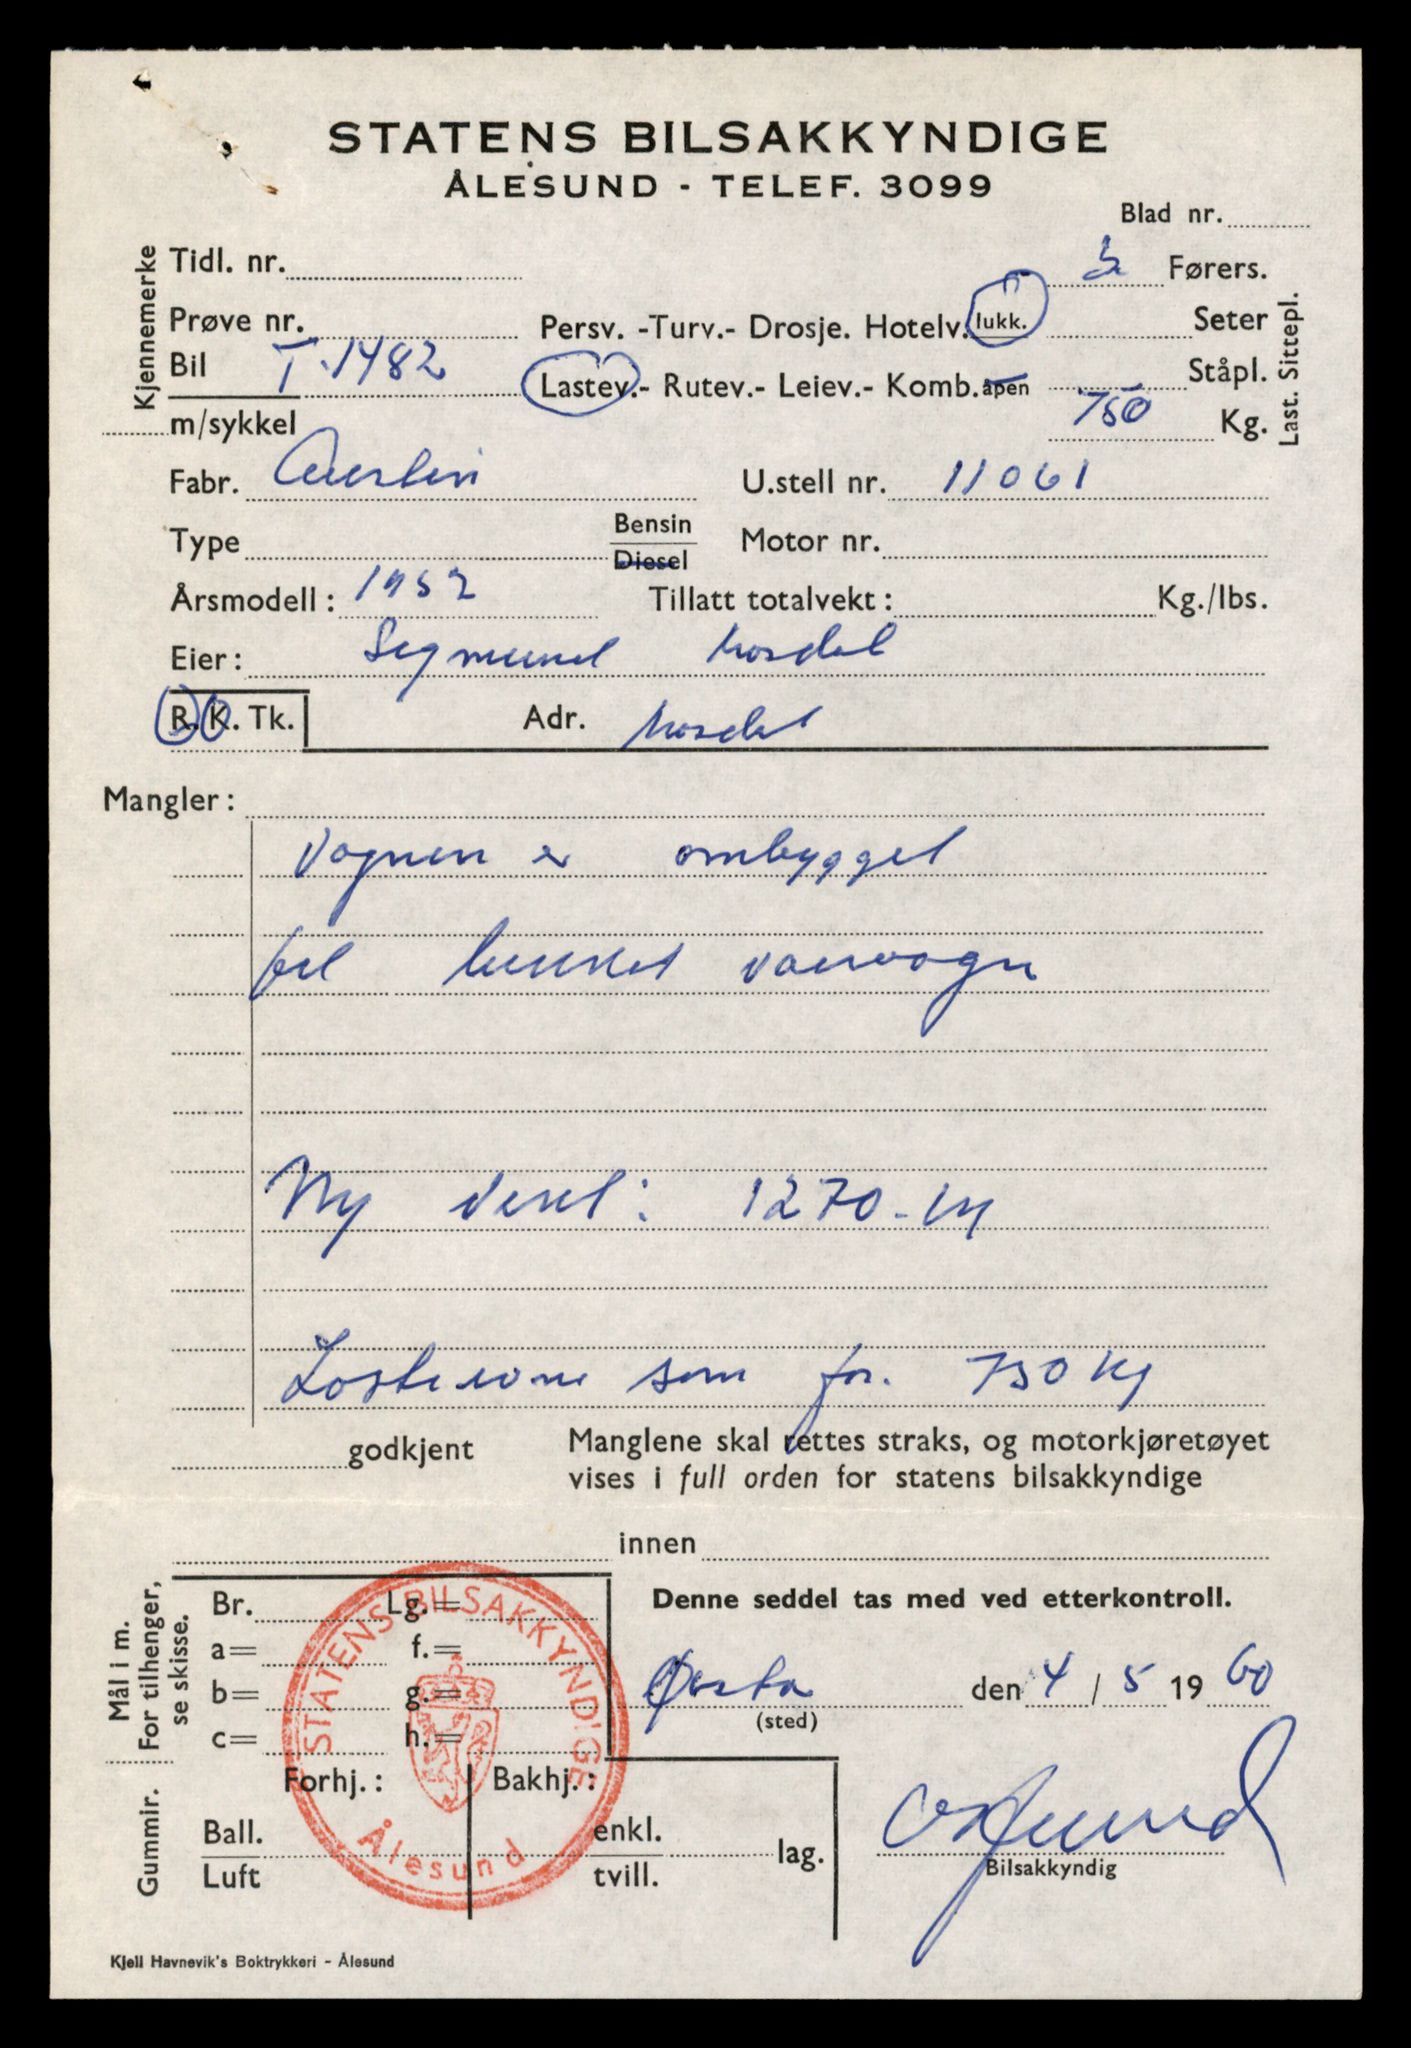 STATENS BILSAKKYNDIGE
ÅLESUND - TELEF. 3099
Blad nr.
Kjennemerke
Tidl. nr.
Førers.
Prøve nr.
Persv. -Turv.- Drosje. Hotelv. lukk.
Seter
Bil T-1482
Lastev.- Rutev.- Leiev.- Komb. åpen
Ståpl.
m/sykkel
750 Kg.
Last. Sittepl.
Fabr. Austin
U.stell nr. 11061
Type
Bensin
Diesel
Motor nr.
Årsmodell: 1952
Tillatt totalvekt: Kg./lbs.
Eier: Sigmund Mosdal
R. K. Tk.
Adr. Mosdal
Mangler:
Vognen er ombygget
til lukket varevogn
Ny vekt: 1270 - kg
Lasteevne som før. 750 kg
godkjent
Manglene skal rettes straks, og motorkjøretøyet
vises i full orden for statens bilsakkyndige
innen
Mål i m.
For tilhenger,
se skisse.
Br. Lg.=
a= f.=
b= g.=
c= h.=
STATENS BILSAKKYNDIGE
Ålesund
Denne seddel tas med ved etterkontroll.
Ørsta den 4/5 1960
(sted)
Gummir.
Forhj.: Bakhj.:
Ball.
Luft
enkl.
tvill.
lag.
Bilsakkyndig
Kjell Havnevik's Boktrykkeri - Ålesund